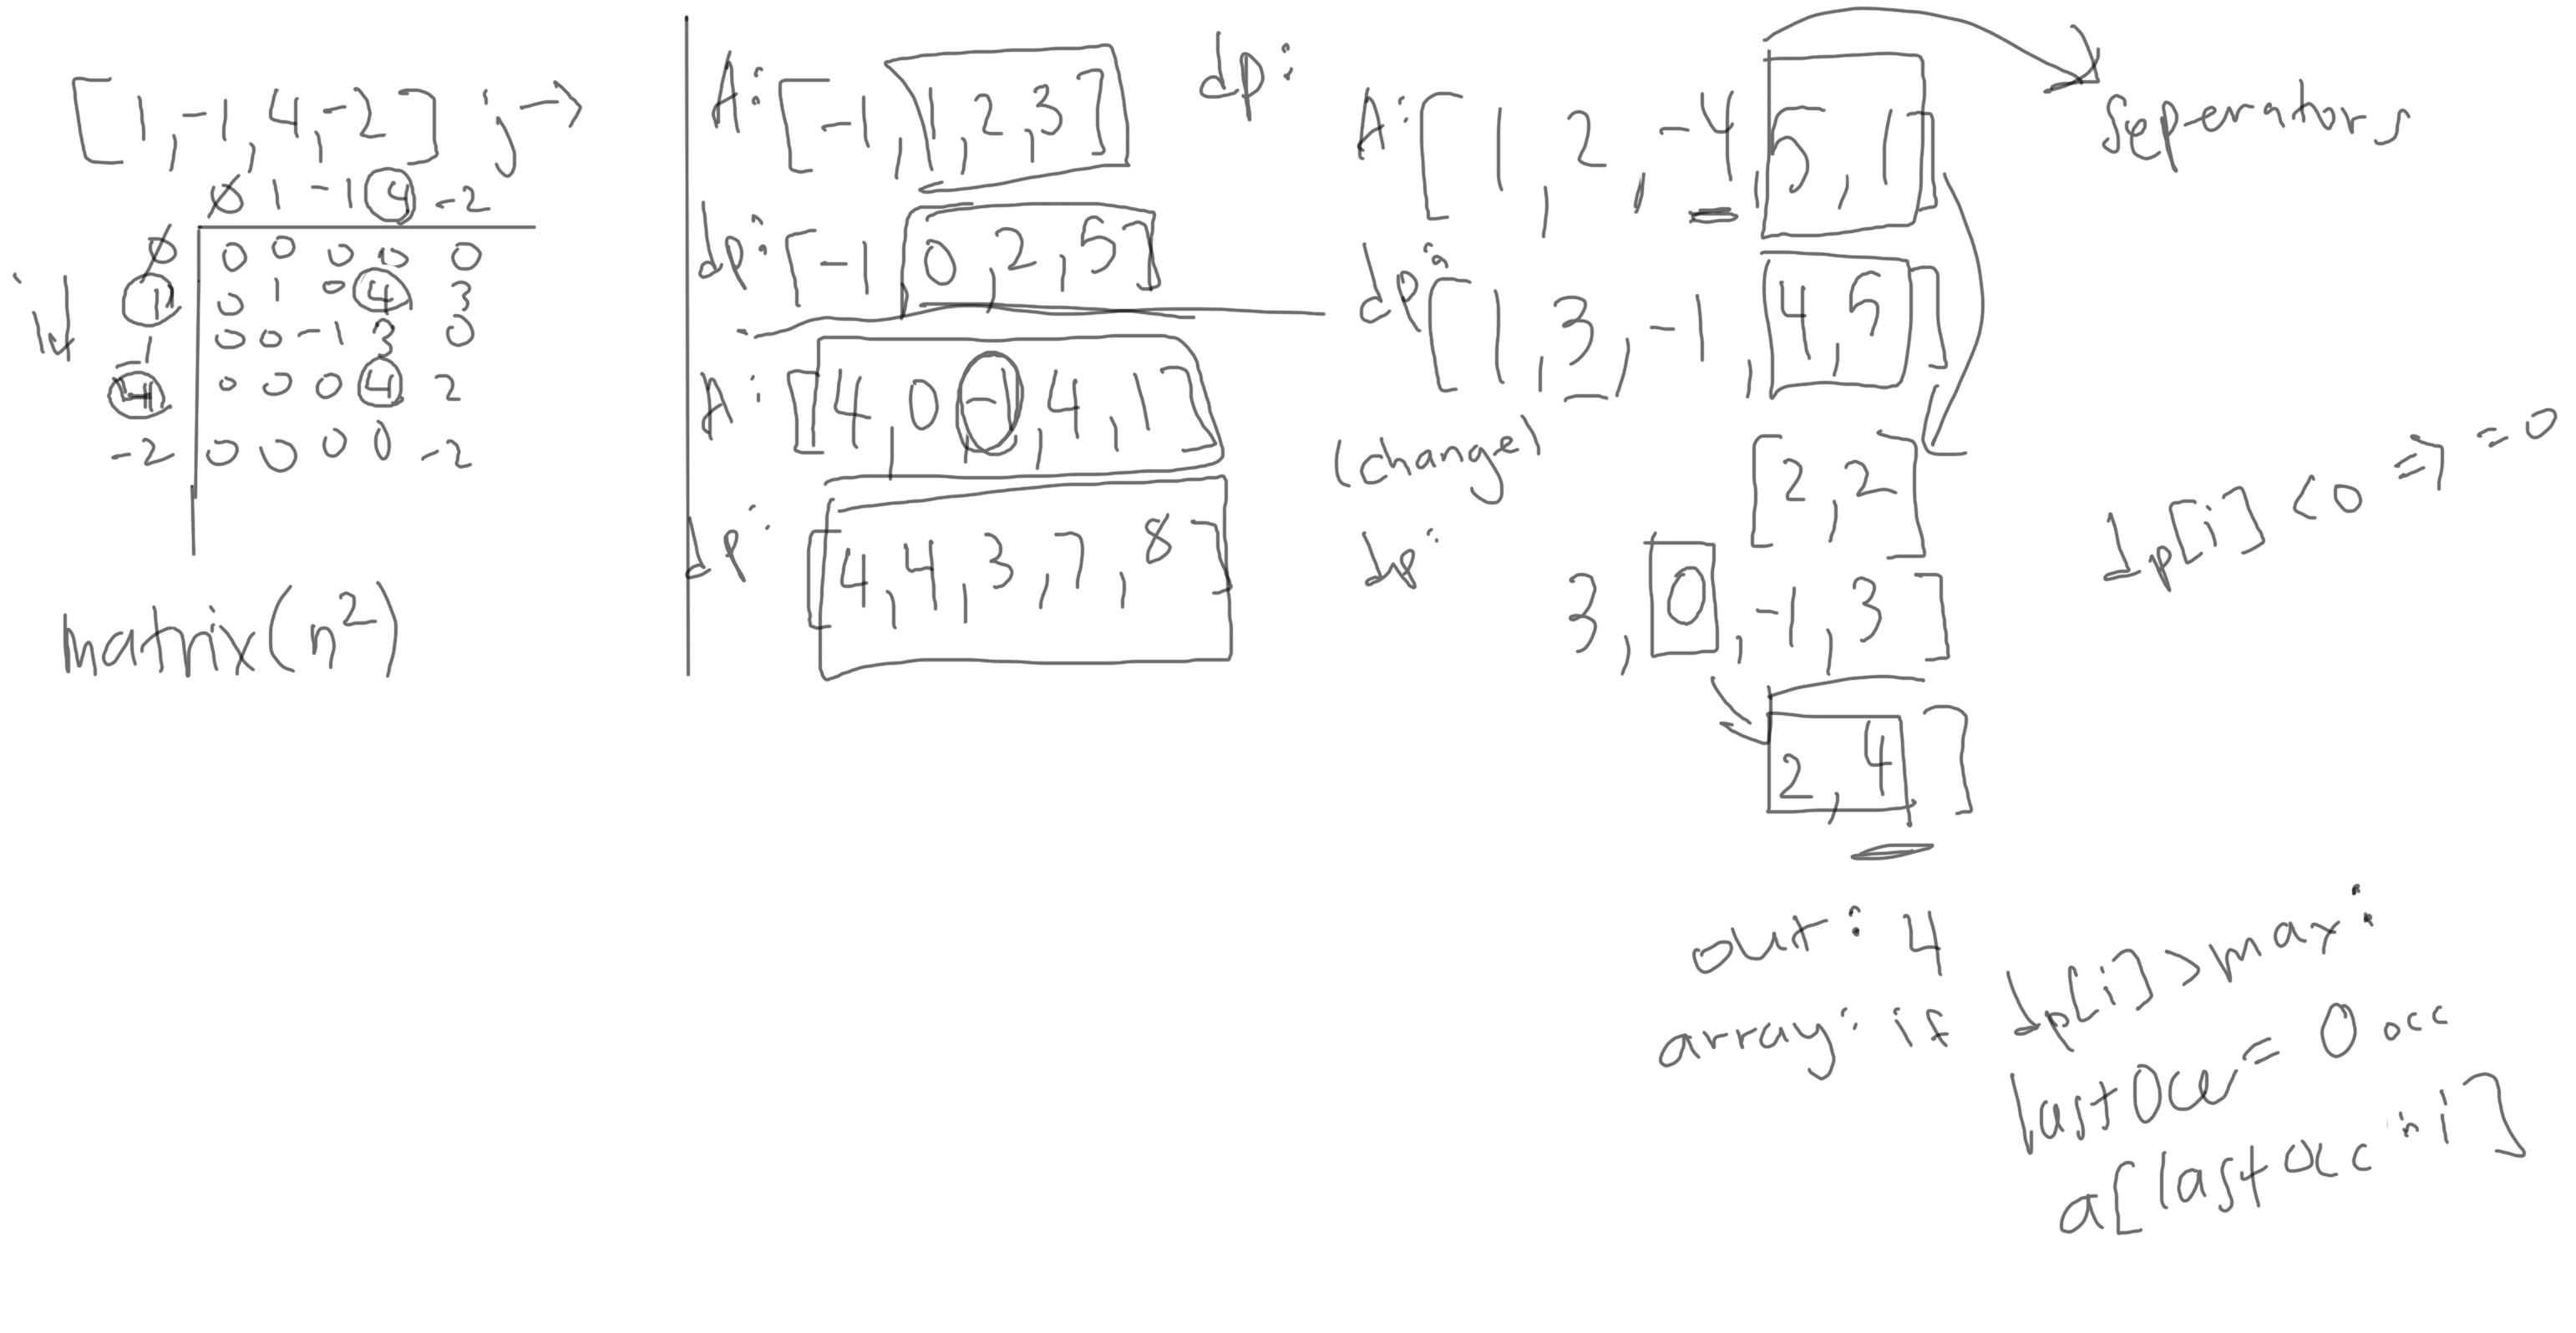 [1,-1,4,-2] j→
∅ 1 -1 4 -2
i↓
∅ 0 0 0 0 0
1 0 1 0 4 3
-1 0 0 -1 3 0
4 0 0 0 4 2
-2 0 0 0 0 -2
matrix(n²)
A: [-1,1,2,3] dp:
dp: [-1,0,2,5]
A: [4,0,-1,4,1]
dp: [4,4,3,7,8]
A: [1,2,-4,5,1]
Seperators
dp: [1,3,-1,4,5]
(change)
[2,2]
dp:
3,0,-1,3]
2,4,]
dp[i]<0 => =0
out: 4
array: if dp[i]>max:
lastOcc=0occ
a[lastocc:i]